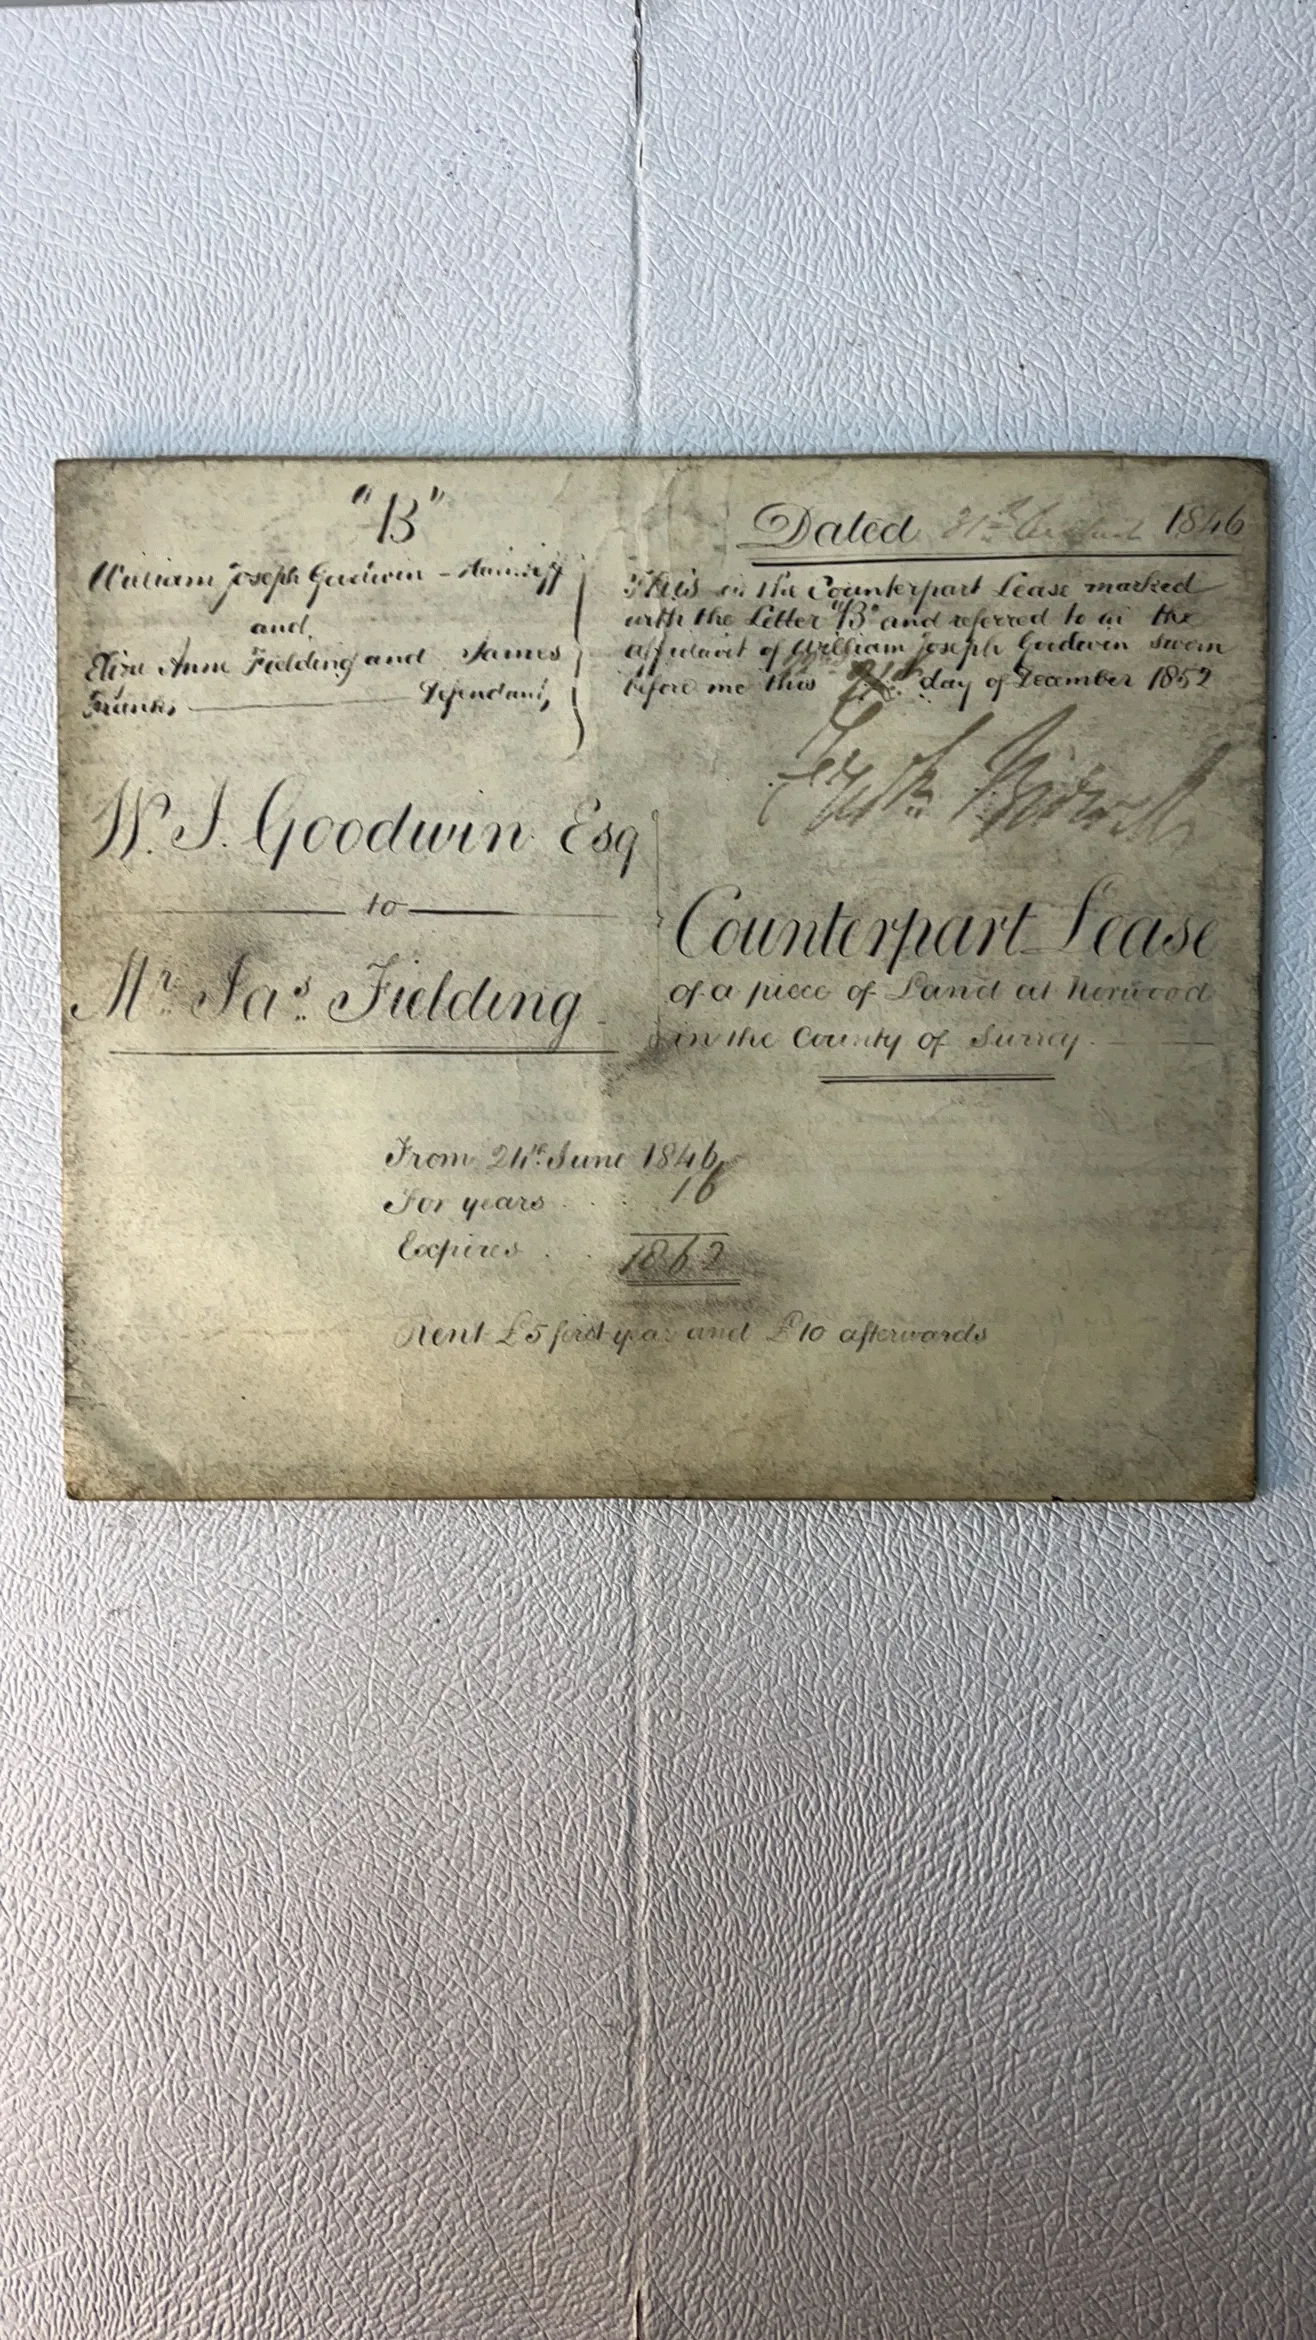 "B"
William Joseph Goodwin – Plaintiff
and
Eliza Anne Fielding and James
Franks Defendants
Dated 31st 1846
This is the Counterpart Lease marked
with the Letter "B" and referred to in the
affidavit of William Joseph Goodwin sworn
before me this day of December 1852
W. J. Goodwin Esq
to
Mr. Jas. Fielding
Counterpart Lease
of a piece of Land at Norwood
in the County of Surrey
From 24th June 1846
For years 16
Expires 1862
Rent £5 first year and £10 afterwards